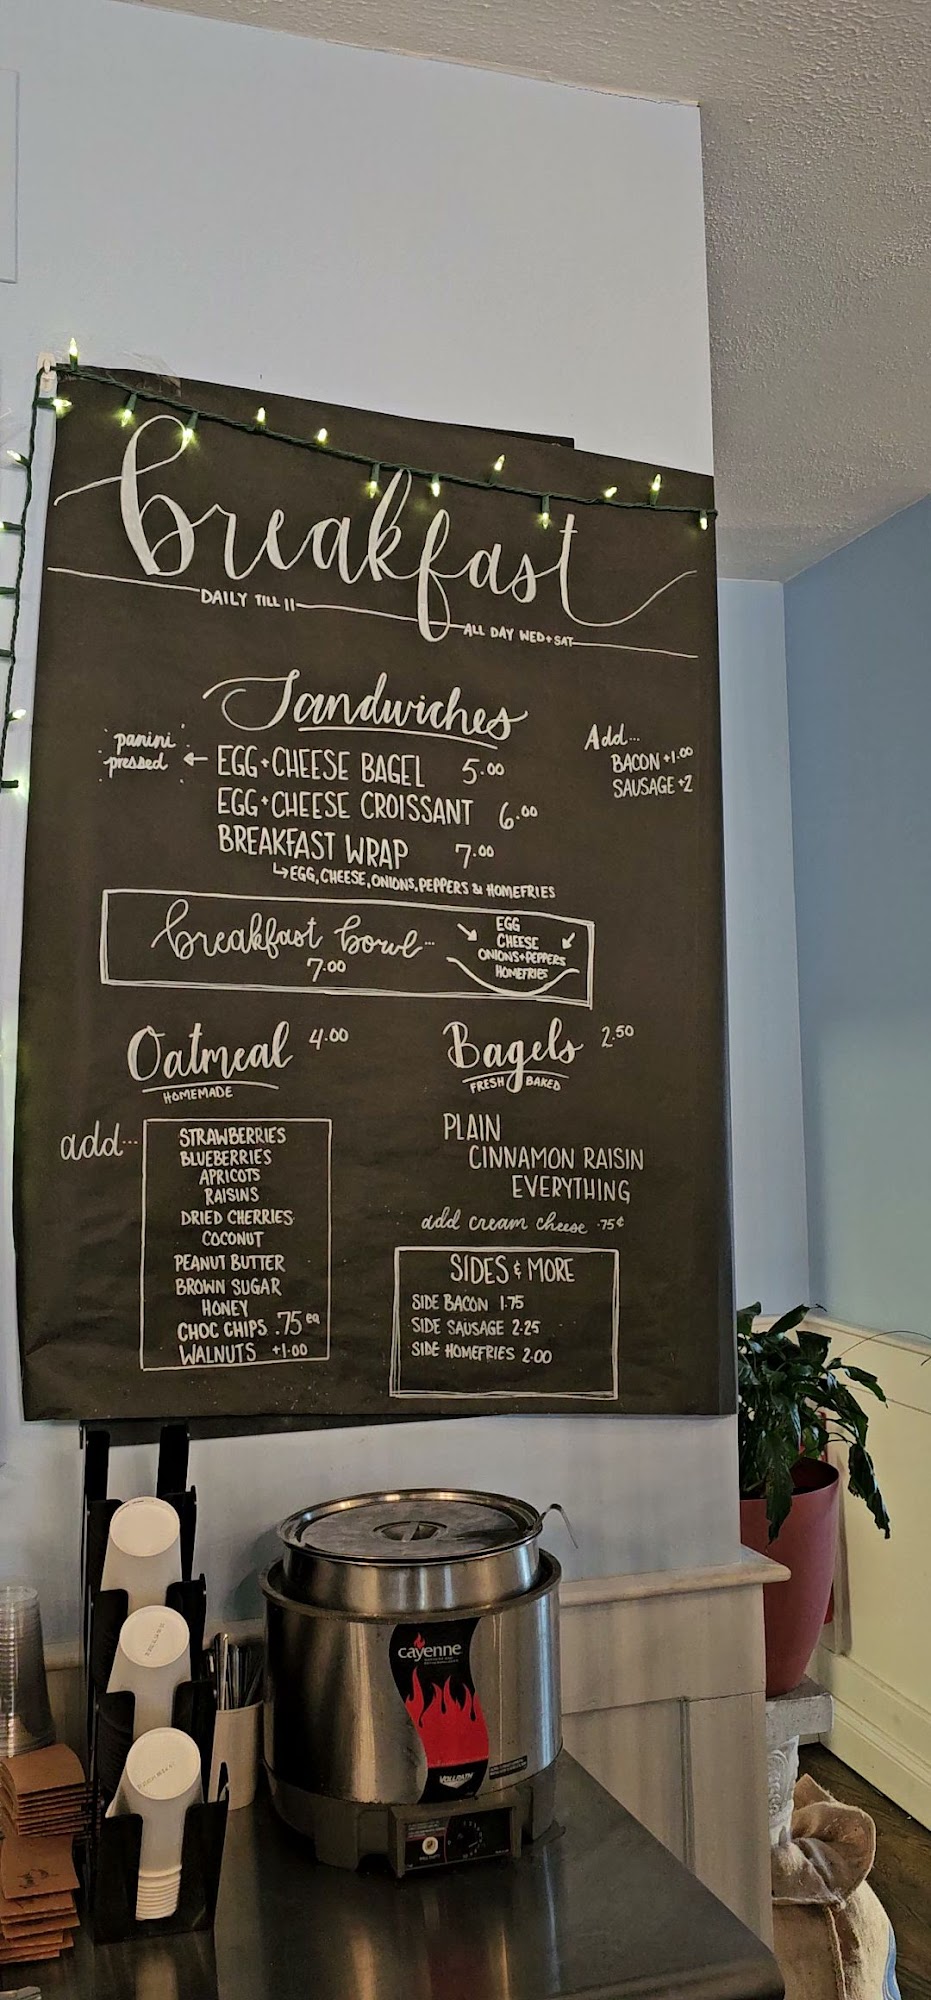 breakfast
DAILY TILL 11
ALL DAY WED+SAT
Sandwiches
panini
pressed
EGG+CHEESE BAGEL 5.00
EGG+CHEESE CROISSANT 6.00
BREAKFAST WRAP 7.00
↳EGG, CHEESE, ONIONS, PEPPERS & HOMEFRIES
Add...
BACON +1.00
SAUSAGE +2
breakfast bowl...
7.00
EGG
CHEESE
ONIONS+PEPPERS
HOMEFRIES
Oatmeal 4.00
HOMEMADE
add...
STRAWBERRIES
BLUEBERRIES
APRICOTS
RAISINS
DRIED CHERRIES
COCONUT
PEANUT BUTTER
BROWN SUGAR
HONEY
CHOC CHIPS .75 ea
WALNUTS +1.00
Bagels 2.50
FRESH BAKED
PLAIN
CINNAMON RAISIN
EVERYTHING
add cream cheese .75¢
SIDES & MORE
SIDE BACON 1.75
SIDE SAUSAGE 2.25
SIDE HOMEFRIES 2.00
cayenne
VOLLRATH